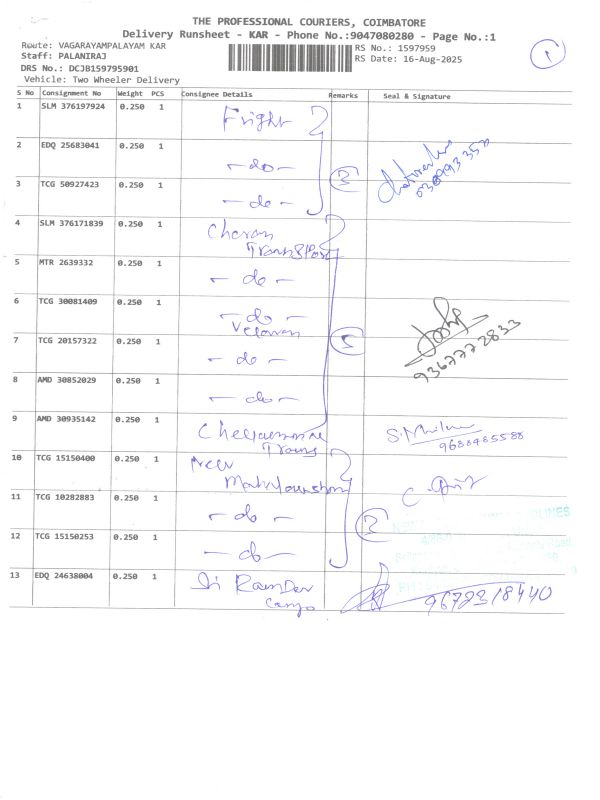 THE PROFESSIONAL COURIERS, COIMBATORE
Delivery Runsheet - KAR - Phone No.:9047080280 - Page No.:1
Route: VAGARAYAMPALAYAM KAR
RS No.: 1597959
1
Staff: PALANIRAJ
RS Date: 16-Aug-2025
DRS No.: DCJB159795901
Vehicle: Two Wheeler Delivery
S No Consignment No Weight PCS Consignee Details Remarks Seal & Signature
1 SLM 376197924 0.250 1 Fright
2 EDQ 25683041 0.250 1 - do -
3
3 TCG 50927423 0.250 1 - do -
4 SLM 376171839 0.250 1 Cheran
Transport
5 MTR 2639332 0.250 1 - do -
6 TCG 30081409 0.250 1 - do -
Velavan
7 TCG 20157322 0.250 1 - do - 5
9367772833
8 AMD 30852029 0.250 1 - do -
9 AMD 30935142 0.250 1
Trans
9688485588
10 TCG 15150400 0.250 1 New
11 TCG 10282883 0.250 1 - do -
12 TCG 15150253 0.250 1 - do -
13 EDQ 24638004 0.250 1 Sri RamDev
Cargo
9672318440